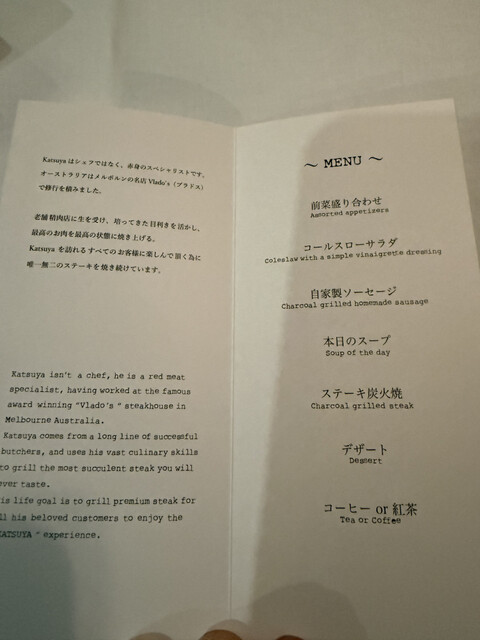 Katsuya はシェフではなく、赤身のスペシャリストです。
オーストラリアはメルボルンの名店 Vlado's（ブラドス）
で修行を積みました。
老舗精肉店に生を受け、培ってきた目利きを活かし、
最高のお肉を最高の状態に焼き上げる。
Katsuya を訪れる すべてのお客様に楽しんで頂く為に
唯一無二のステーキを焼き続けています。
Katsuya isn't a chef, he is a red meat
specialist, having worked at the famous
award winning "Vlado's " steakhouse in
Melbourne Australia.
Katsuya comes from a long line of successful
butchers, and uses his vast culinary skills
to grill the most succulent steak you will
ever taste.
is life goal is to grill premium steak for
ll his beloved customers to enjoy the
KATSUYA " experience.
～ MENU ～
前菜盛り合わせ
Assorted appetizers
コールスローサラダ
Coleslaw with a simple vinaigrette dressing
自家製ソーセージ
Charcoal grilled homemade sausage
本日のスープ
Soup of the day
ステーキ炭火焼
Charcoal grilled steak
デザート
Dessert
コーヒー or 紅茶
Tea or Coffee